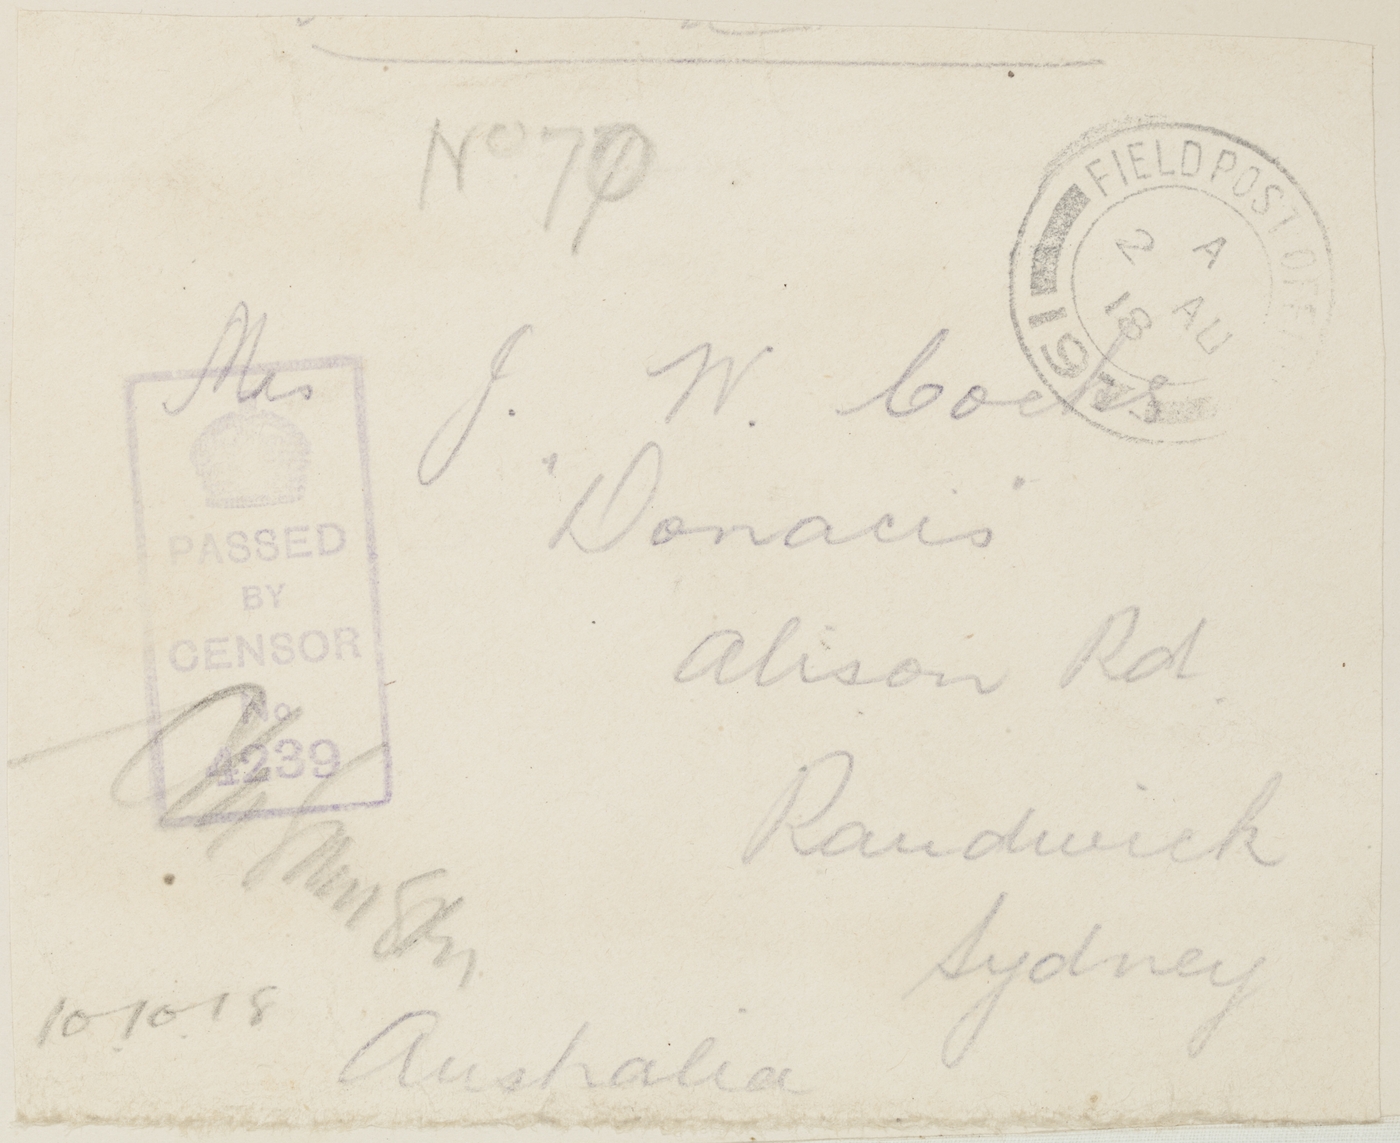 No 70
FIELD POST OFFICE
A
2 AU
18
19
Mrs J. W. Cocks
"Donacis"
Alison Rd.
Randwick
Sydney
Australia
PASSED
BY
CENSOR
No
4239
10.10.18